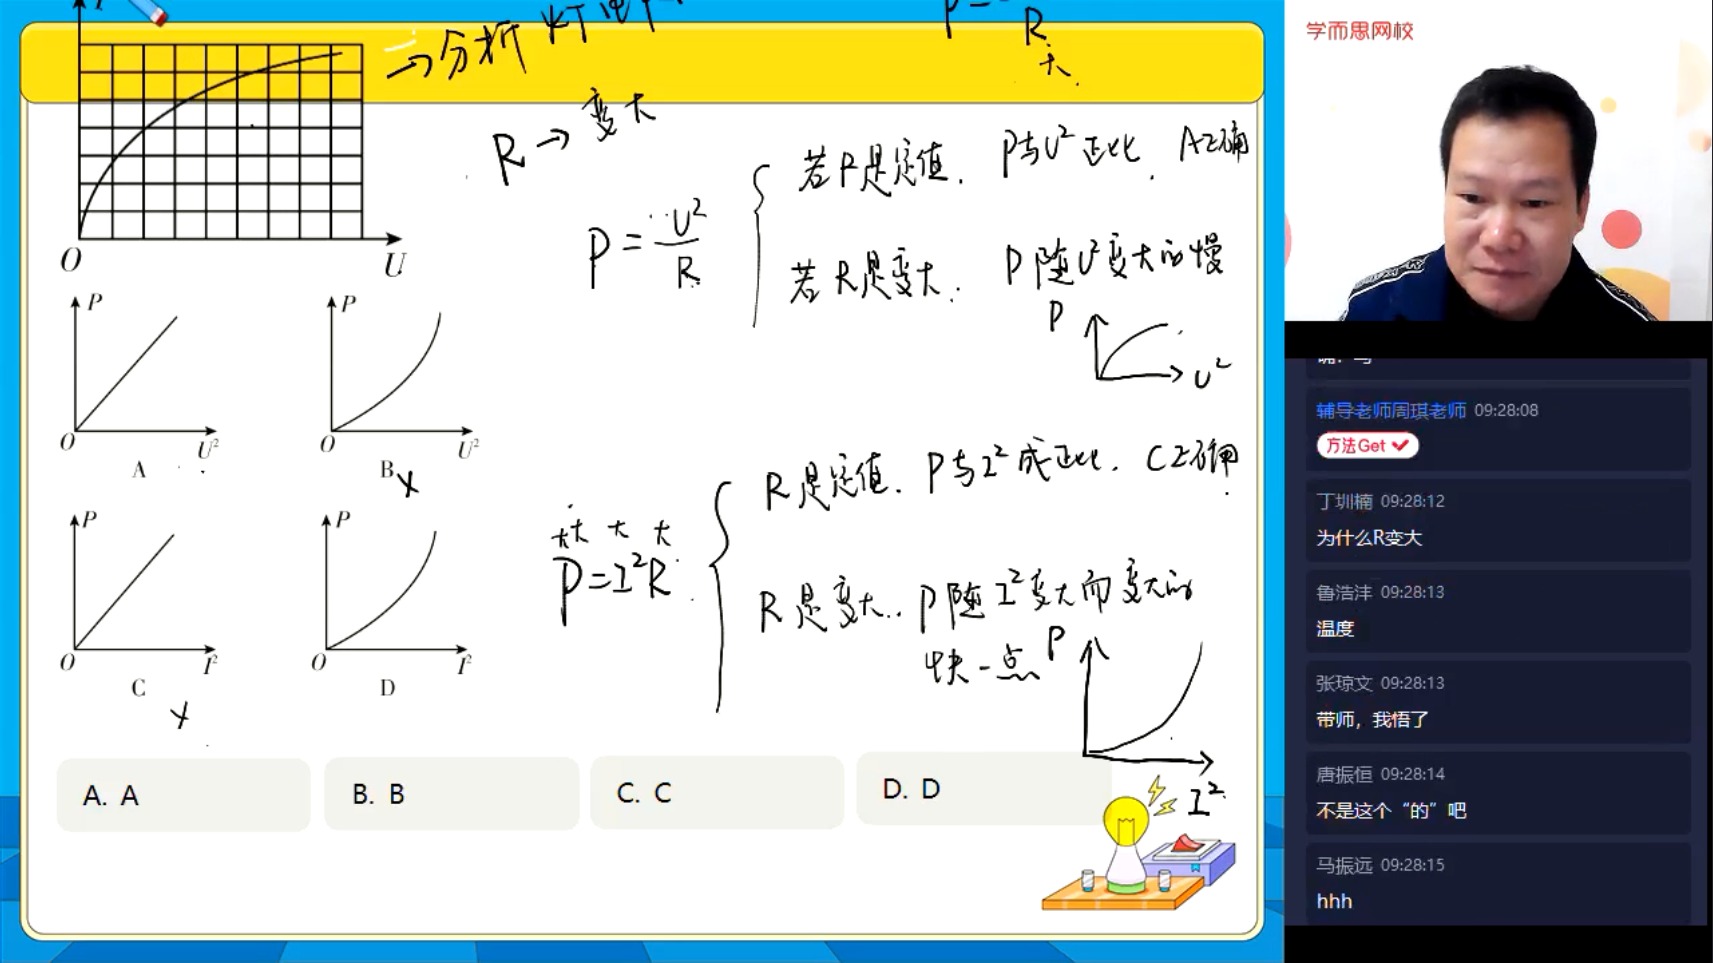 →分析 灯
R
大
R → 变大
O
U
P = U²/R
若R是定值. P与U²正比. A正确
若R是变大. P随U²变大的慢
P
U²
P
O
U²
A
P
O
U²
B x
P
O
I²
C x
P
O
I²
D
大 大 大
P=I²R
R是定值. P与I²成正比. C正确
R是变大.. P随I²变大而变大的
快一点
P
I²
A. A
B. B
C. C
D. D
学而思网校
辅导老师周琪老师 09:28:08
方法Get
丁圳楠 09:28:12
为什么R变大
鲁浩沣 09:28:13
温度
张琼文 09:28:13
带师，我悟了
唐振恒 09:28:14
不是这个“的”吧
马振远 09:28:15
hhh